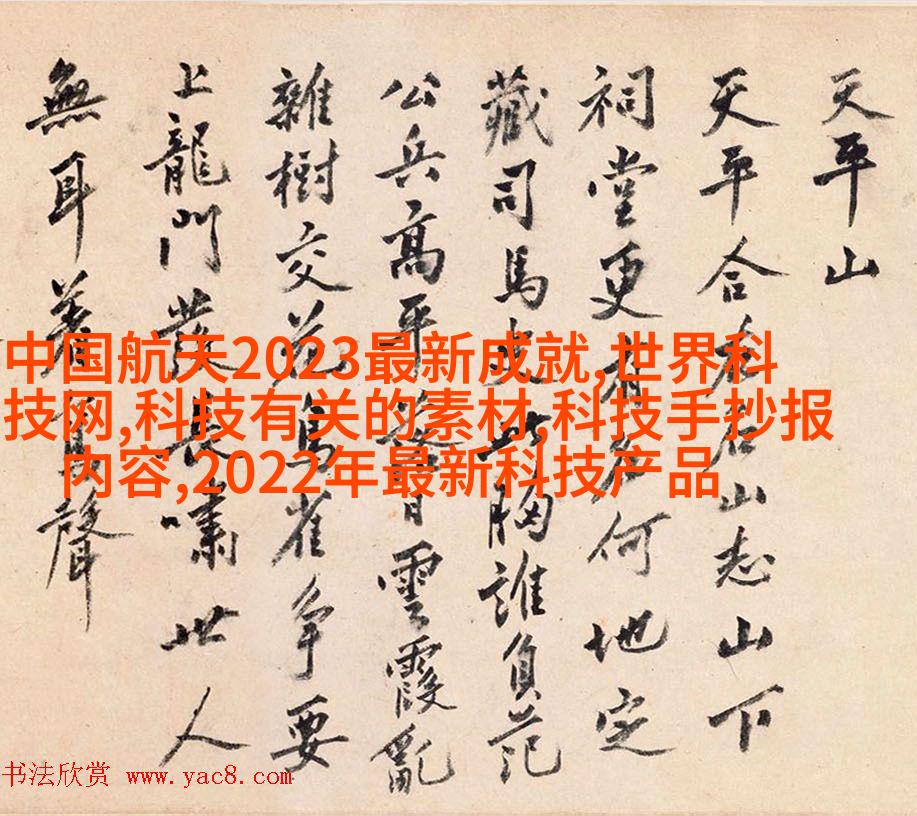 天平山
天平合山志山下
祠堂更有何地定
藏司馬史此胸誰負范
公兵高平雲霞亂
雜樹交花鳥雀爭要
上龍門發長嘯世人
無耳著聲
中国航天2023最新成就,世界科
技网,科技有关的素材,科技手抄报
内容,2022年最新科技产品
书法欣赏 www.yac8.com